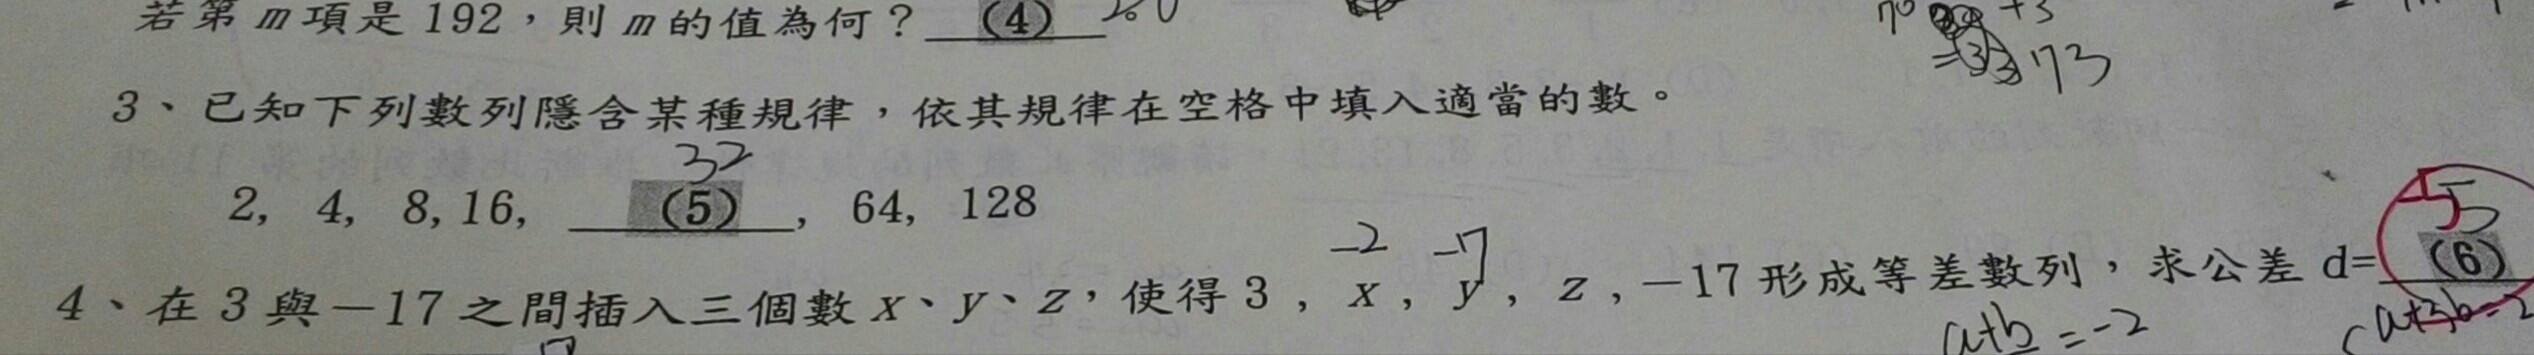 若第 m 項是 192，則 m 的值為何？ (4)
+3
=373
3、已知下列數列隱含某種規律，依其規律在空格中填入適當的數。
32
2, 4, 8, 16, (5) , 64, 128
-2 -7 -5
4、在 3 與－17 之間插入三個數 x、y、z，使得 3 , x , y , z , －17 形成等差數列，求公差 d= (6)
a+b = -2